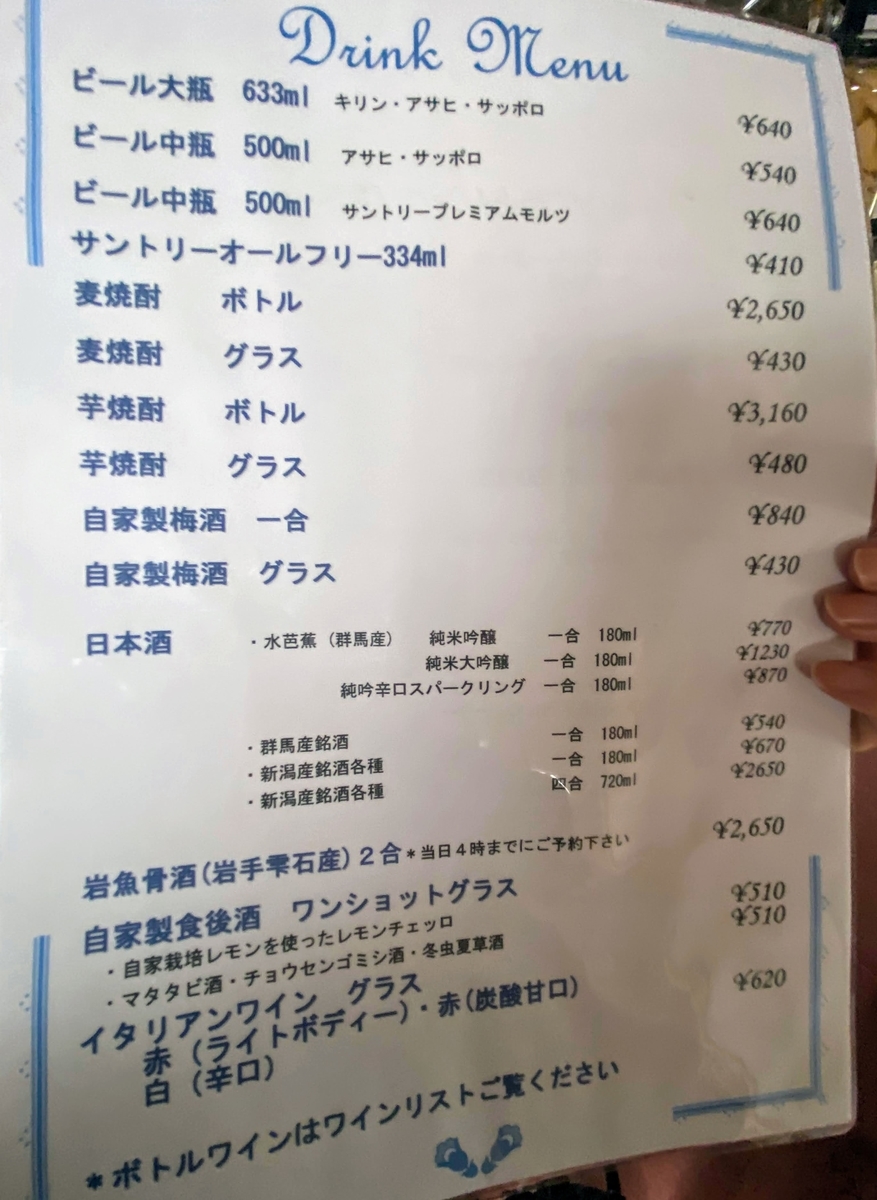 Drink Menu
ビール大瓶 633ml キリン・アサヒ・サッポロ ¥640
ビール中瓶 500ml アサヒ・サッポロ ¥540
ビール中瓶 500ml サントリープレミアムモルツ ¥640
サントリーオールフリー334ml ¥410
麦焼酎 ボトル ¥2,650
麦焼酎 グラス ¥430
芋焼酎 ボトル ¥3,160
芋焼酎 グラス ¥480
自家製梅酒 一合 ¥840
自家製梅酒 グラス ¥430
日本酒 ・水芭蕉（群馬産） 純米吟醸 一合 180ml ¥770
純米大吟醸 一合 180ml ¥1230
純吟辛口スパークリング 一合 180ml ¥870
・群馬産銘酒 一合 180ml ¥540
・新潟産銘酒各種 一合 180ml ¥670
・新潟産銘酒各種 四合 720ml ¥2650
岩魚骨酒(岩手雫石産)２合＊当日４時までにご予約下さい ¥2,650
自家製食後酒 ワンショットグラス
・自家栽培レモンを使ったレモンチェッロ ¥510
・マタタビ酒・チョウセンゴミシ酒・冬虫夏草酒 ¥510
イタリアンワイン グラス ¥620
赤（ライトボディー）・赤(炭酸甘口)
白（辛口）
＊ボトルワインはワインリストご覧ください